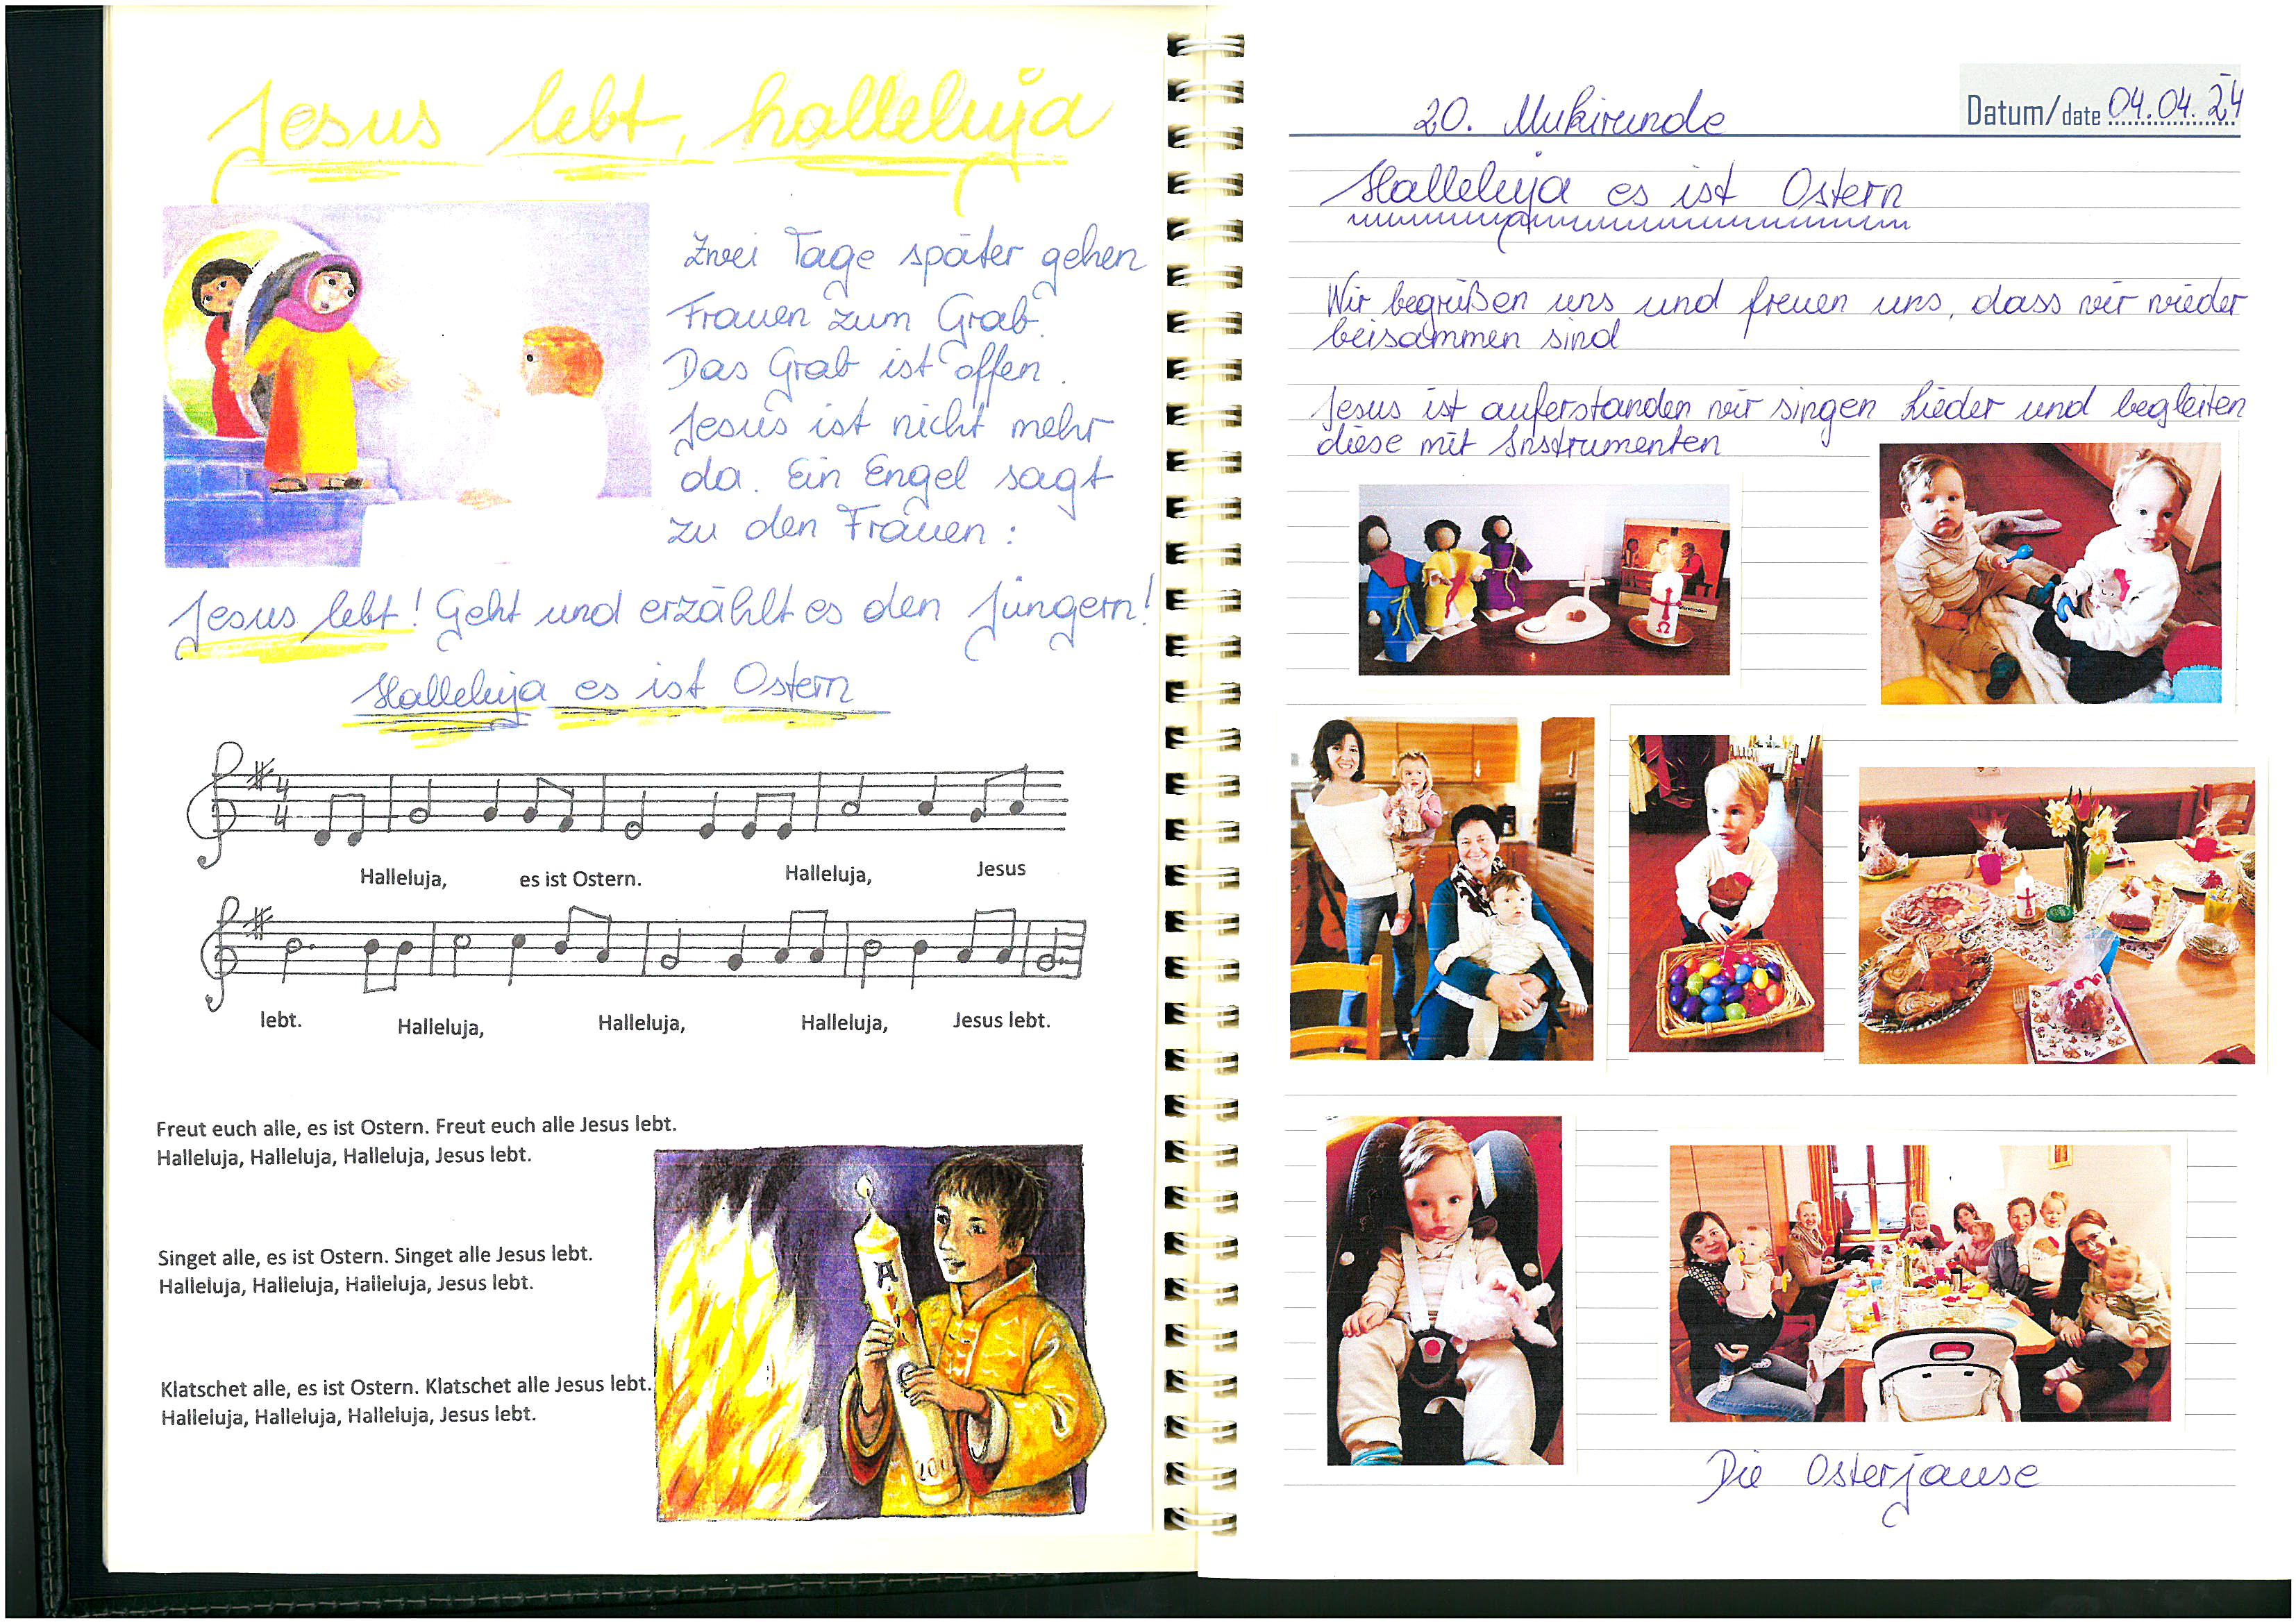 Jesus lebt, halleluja
Zwei Tage später gehen
Frauen zum Grab.
Das Grab ist offen.
Jesus ist nicht mehr
da. Ein Engel sagt
zu den Frauen:
Jesus lebt! Geht und erzählt es den Jüngern!
Halleluja es ist Ostern
4
4
Halleluja, es ist Ostern. Halleluja, Jesus
lebt. Halleluja, Halleluja, Halleluja, Jesus lebt.
Freut euch alle, es ist Ostern. Freut euch alle Jesus lebt.
Halleluja, Halleluja, Halleluja, Jesus lebt.
Singet alle, es ist Ostern. Singet alle Jesus lebt.
Halleluja, Halleluja, Halleluja, Jesus lebt.
Klatschet alle, es ist Ostern. Klatschet alle Jesus lebt.
Halleluja, Halleluja, Halleluja, Jesus lebt.
A
20. Mukirunde
Datum/date 04.04.24
Halleluja es ist Ostern
Wir begrüßen uns und freuen uns, dass wir wieder
beisammen sind
Jesus ist auferstanden wir singen Lieder und begleiten
diese mit Instrumenten
Ω
Die Osterjause